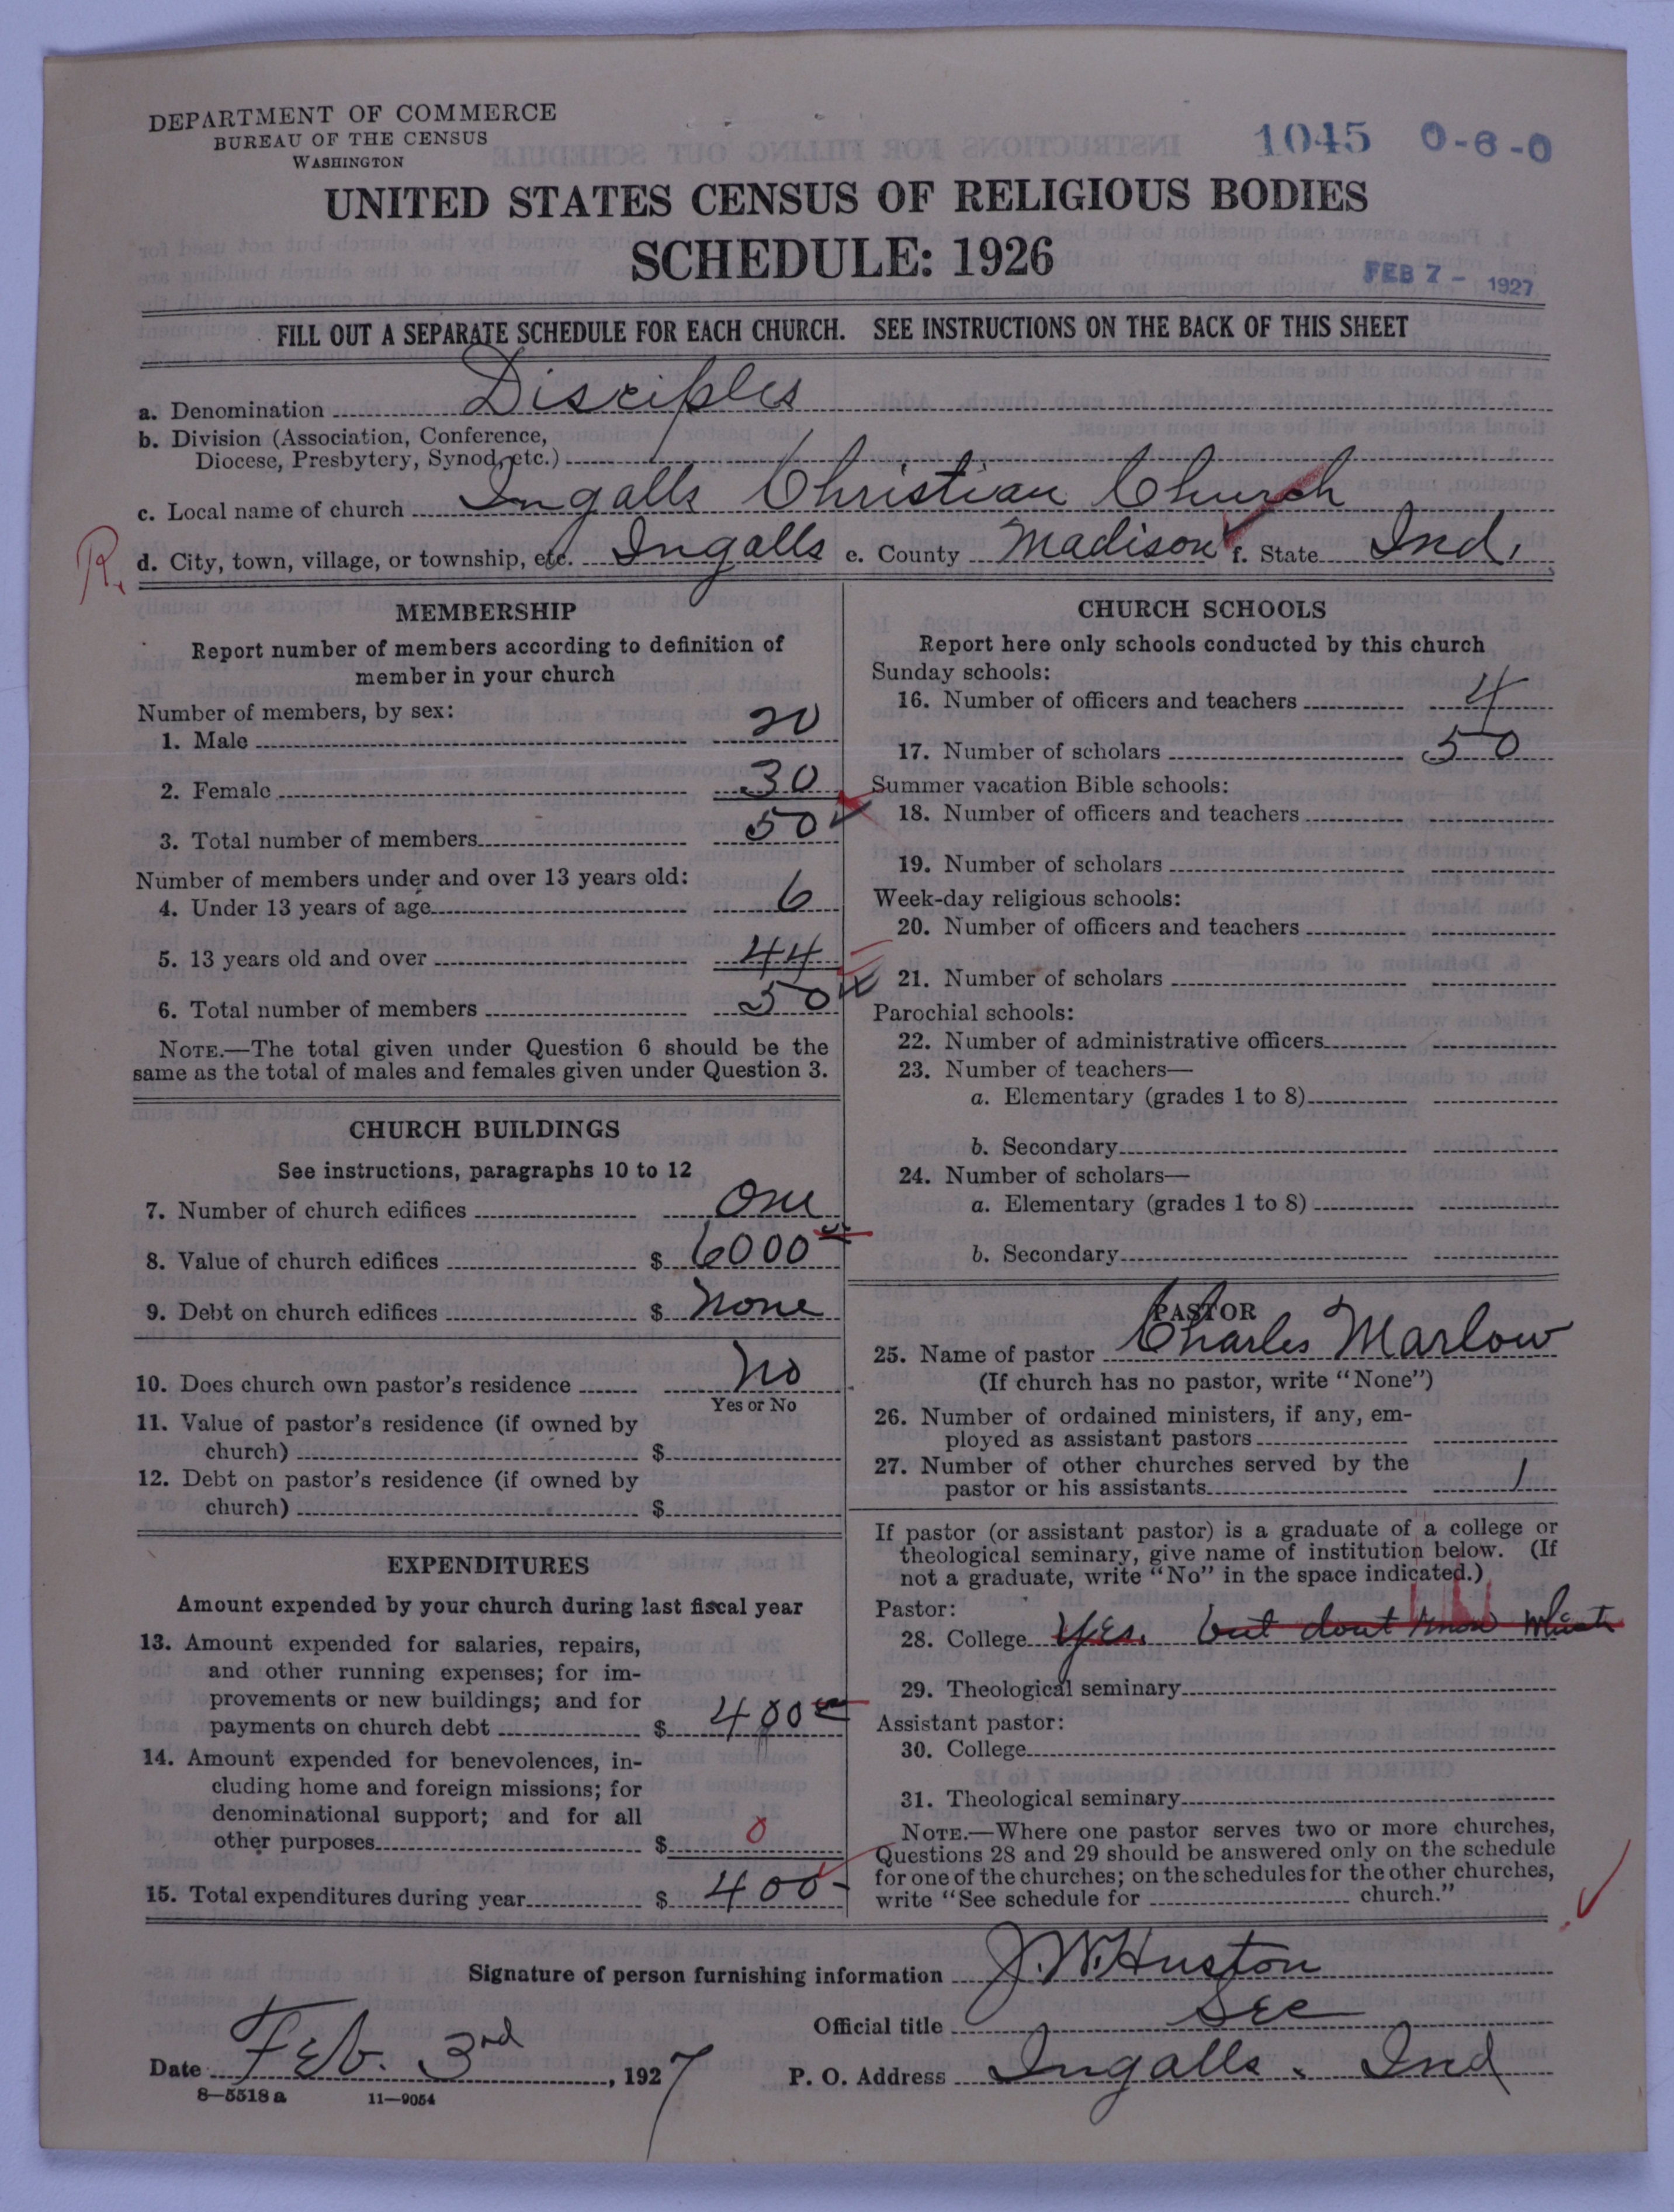 DEPARTMENT OF COMMERCE
BUREAU OF THE CENSUS
WASHINGTON
1045 0-6-0
UNITED STATES CENSUS OF RELIGIOUS BODIES
SCHEDULE: 1926
FEB 7 - 1927
FILL OUT A SEPARATE SCHEDULE FOR EACH CHURCH. SEE INSTRUCTIONS ON THE BACK OF THIS SHEET
a. Denomination Disciples
b. Division (Association, Conference,
Diocese, Presbytery, Synod, etc.)
c. Local name of church Ingalls Christian Church
R. d. City, town, village, or township, etc. Ingalls e. County Madison f. State Ind.
MEMBERSHIP
Report number of members according to definition of
member in your church
Number of members, by sex:
1. Male 20
2. Female 30
3. Total number of members 50
Number of members under and over 13 years old:
4. Under 13 years of age 6
5. 13 years old and over 44
6. Total number of members 50
NOTE.—The total given under Question 6 should be the
same as the total of males and females given under Question 3.
CHURCH BUILDINGS
See instructions, paragraphs 10 to 12
7. Number of church edifices One
8. Value of church edifices $ 6000
9. Debt on church edifices $ None
10. Does church own pastor's residence No
Yes or No
11. Value of pastor's residence (if owned by
church) $
12. Debt on pastor's residence (if owned by
church) $
EXPENDITURES
Amount expended by your church during last fiscal year
13. Amount expended for salaries, repairs,
and other running expenses; for im-
provements or new buildings; and for
payments on church debt $ 400
14. Amount expended for benevolences, in-
cluding home and foreign missions; for
denominational support; and for all
other purposes $ 0
15. Total expenditures during year $ 400
CHURCH SCHOOLS
Report here only schools conducted by this church
Sunday schools:
16. Number of officers and teachers 4
17. Number of scholars 50
Summer vacation Bible schools:
18. Number of officers and teachers
19. Number of scholars
Week-day religious schools:
20. Number of officers and teachers
21. Number of scholars
Parochial schools:
22. Number of administrative officers
23. Number of teachers—
a. Elementary (grades 1 to 8)
b. Secondary
24. Number of scholars—
a. Elementary (grades 1 to 8)
b. Secondary
PASTOR
25. Name of pastor Charles Marlow
(If church has no pastor, write "None")
26. Number of ordained ministers, if any, em-
ployed as assistant pastors
27. Number of other churches served by the
pastor or his assistants 1
If pastor (or assistant pastor) is a graduate of a college or
theological seminary, give name of institution below. (If
not a graduate, write "No" in the space indicated.)
Pastor:
28. College Yes. but dont know which
29. Theological seminary
Assistant pastor:
30. College
31. Theological seminary
NOTE.—Where one pastor serves two or more churches,
Questions 28 and 29 should be answered only on the schedule
for one of the churches; on the schedules for the other churches,
write "See schedule for church."
Signature of person furnishing information J. W. Huston
Official title Sec
Date Feb. 3rd, 1927 P. O. Address Ingalls. Ind
8—5518 a 11—9054